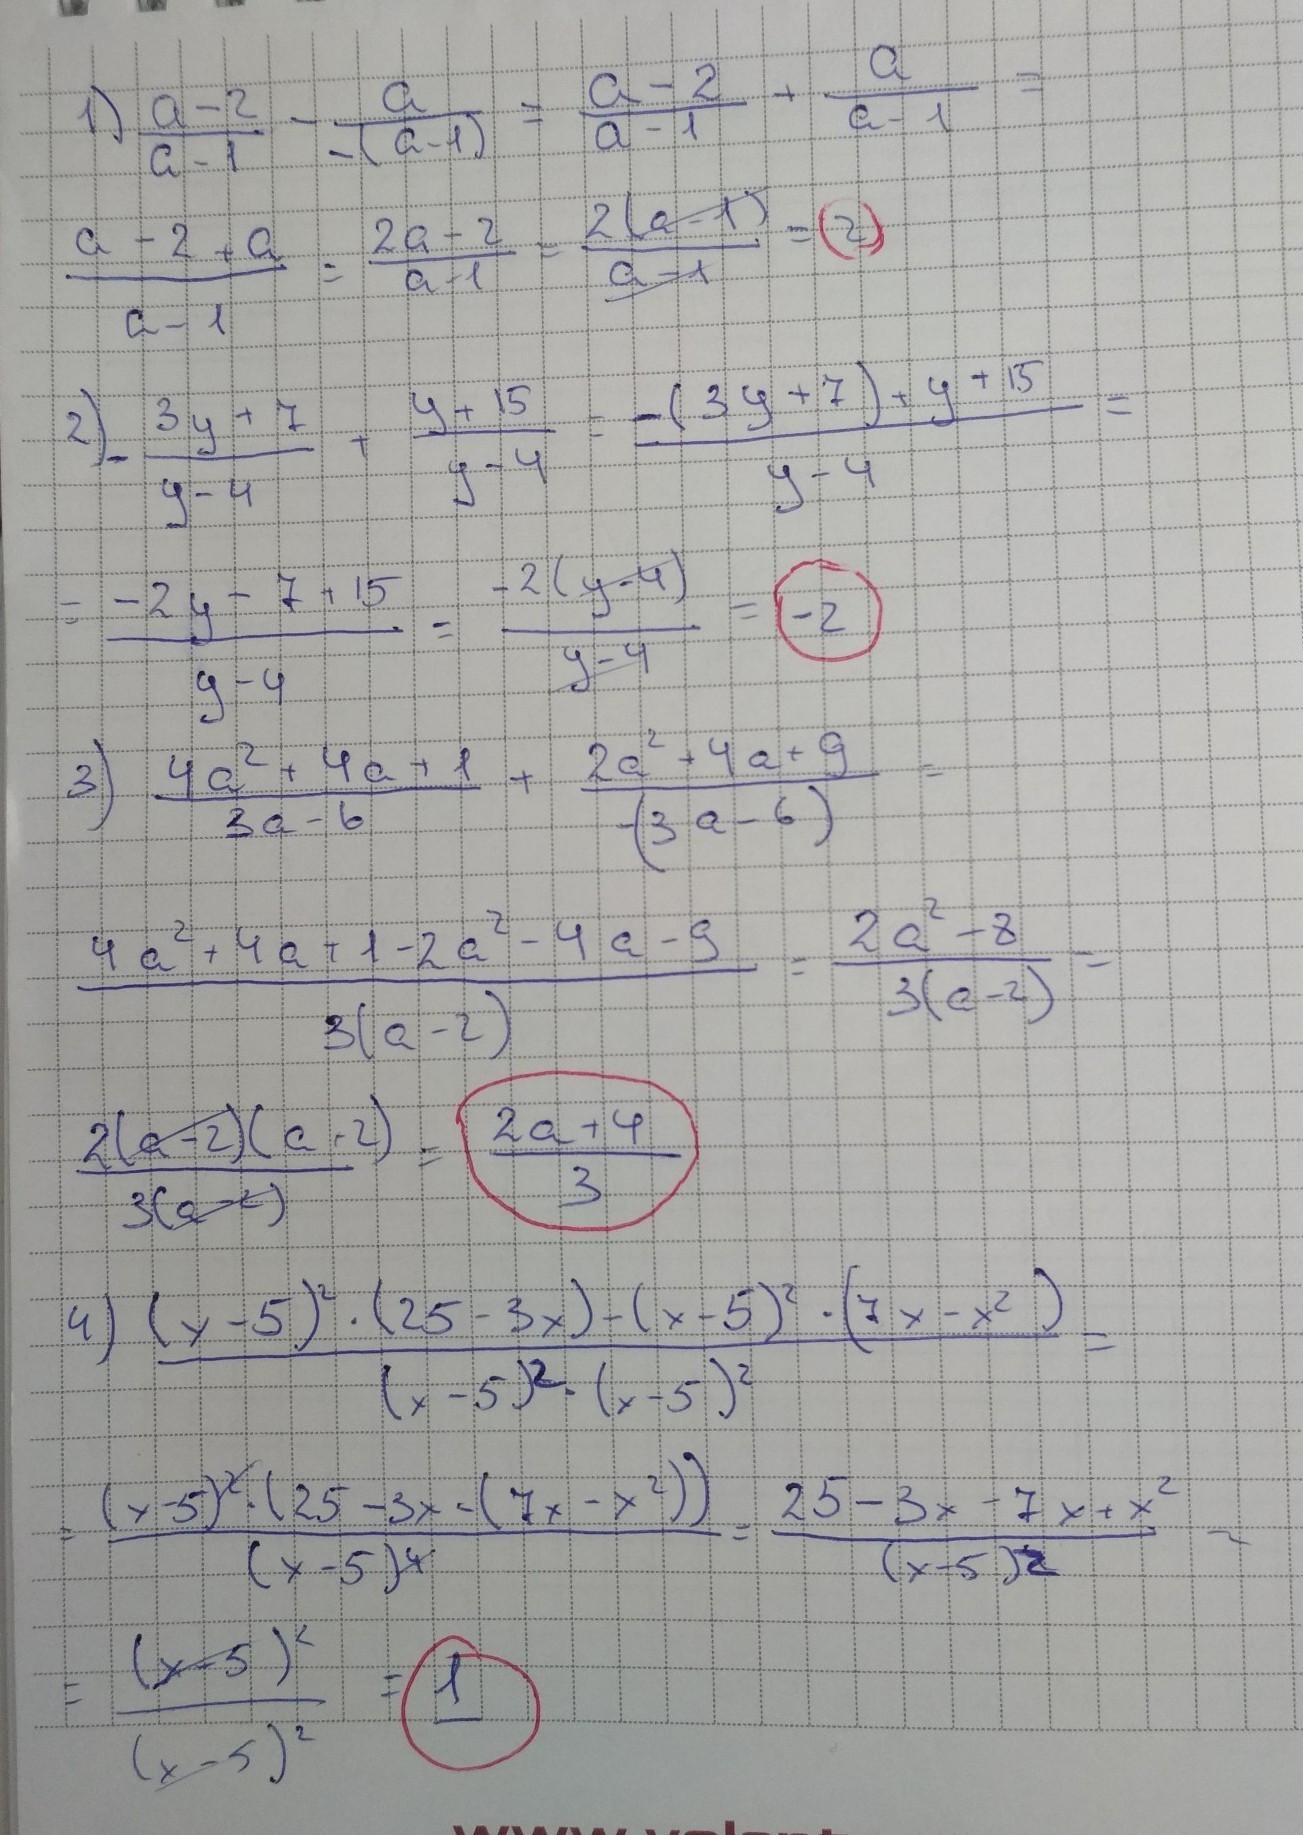 1) (a-2)/(a-1) - a/(-(a-1)) = (a-2)/(a-1) + a/(a-1) =
(a-2+a)/(a-1) = (2a-2)/(a-1) = 2(a-1)/(a-1) = 2
2) - (3y+7)/(y-4) + (y+15)/(y-4) = (-(3y+7)+y+15)/(y-4) =
= (-2y-7+15)/(y-4) = -2(y-4)/(y-4) = -2
3) (4a²+4a+1)/(3a-6) + (2a²+4a+9)/(-(3a-6)) =
(4a²+4a+1-2a²-4a-9)/(3(a-2)) = (2a²-8)/(3(a-2)) =
2(a-2)(a+2)/(3(a-2)) = (2a+4)/3
4) ((x-5)²·(25-3x)-(x-5)²·(7x-x²))/((x-5)²·(x-5)²) =
= ((x-5)²·(25-3x-(7x-x²)))/(x-5)⁴ = (25-3x-7x+x²)/(x-5)² =
= (x-5)²/(x-5)² = 1